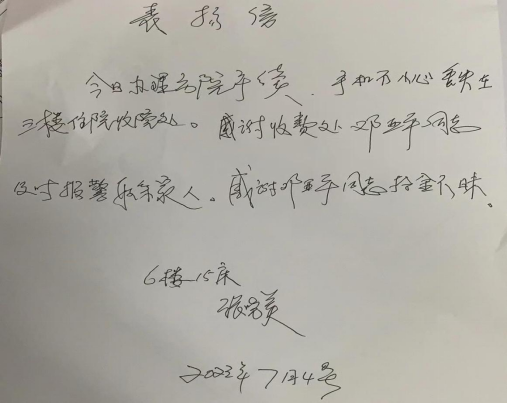 表扬信
今日办理出院手续,手机不小心丢失在
三楼住院收院处。感谢收费处邓亚平同志
及时报警联系家人。感谢邓亚平同志拾金不昧。
6楼15床
张
2023年7月4号